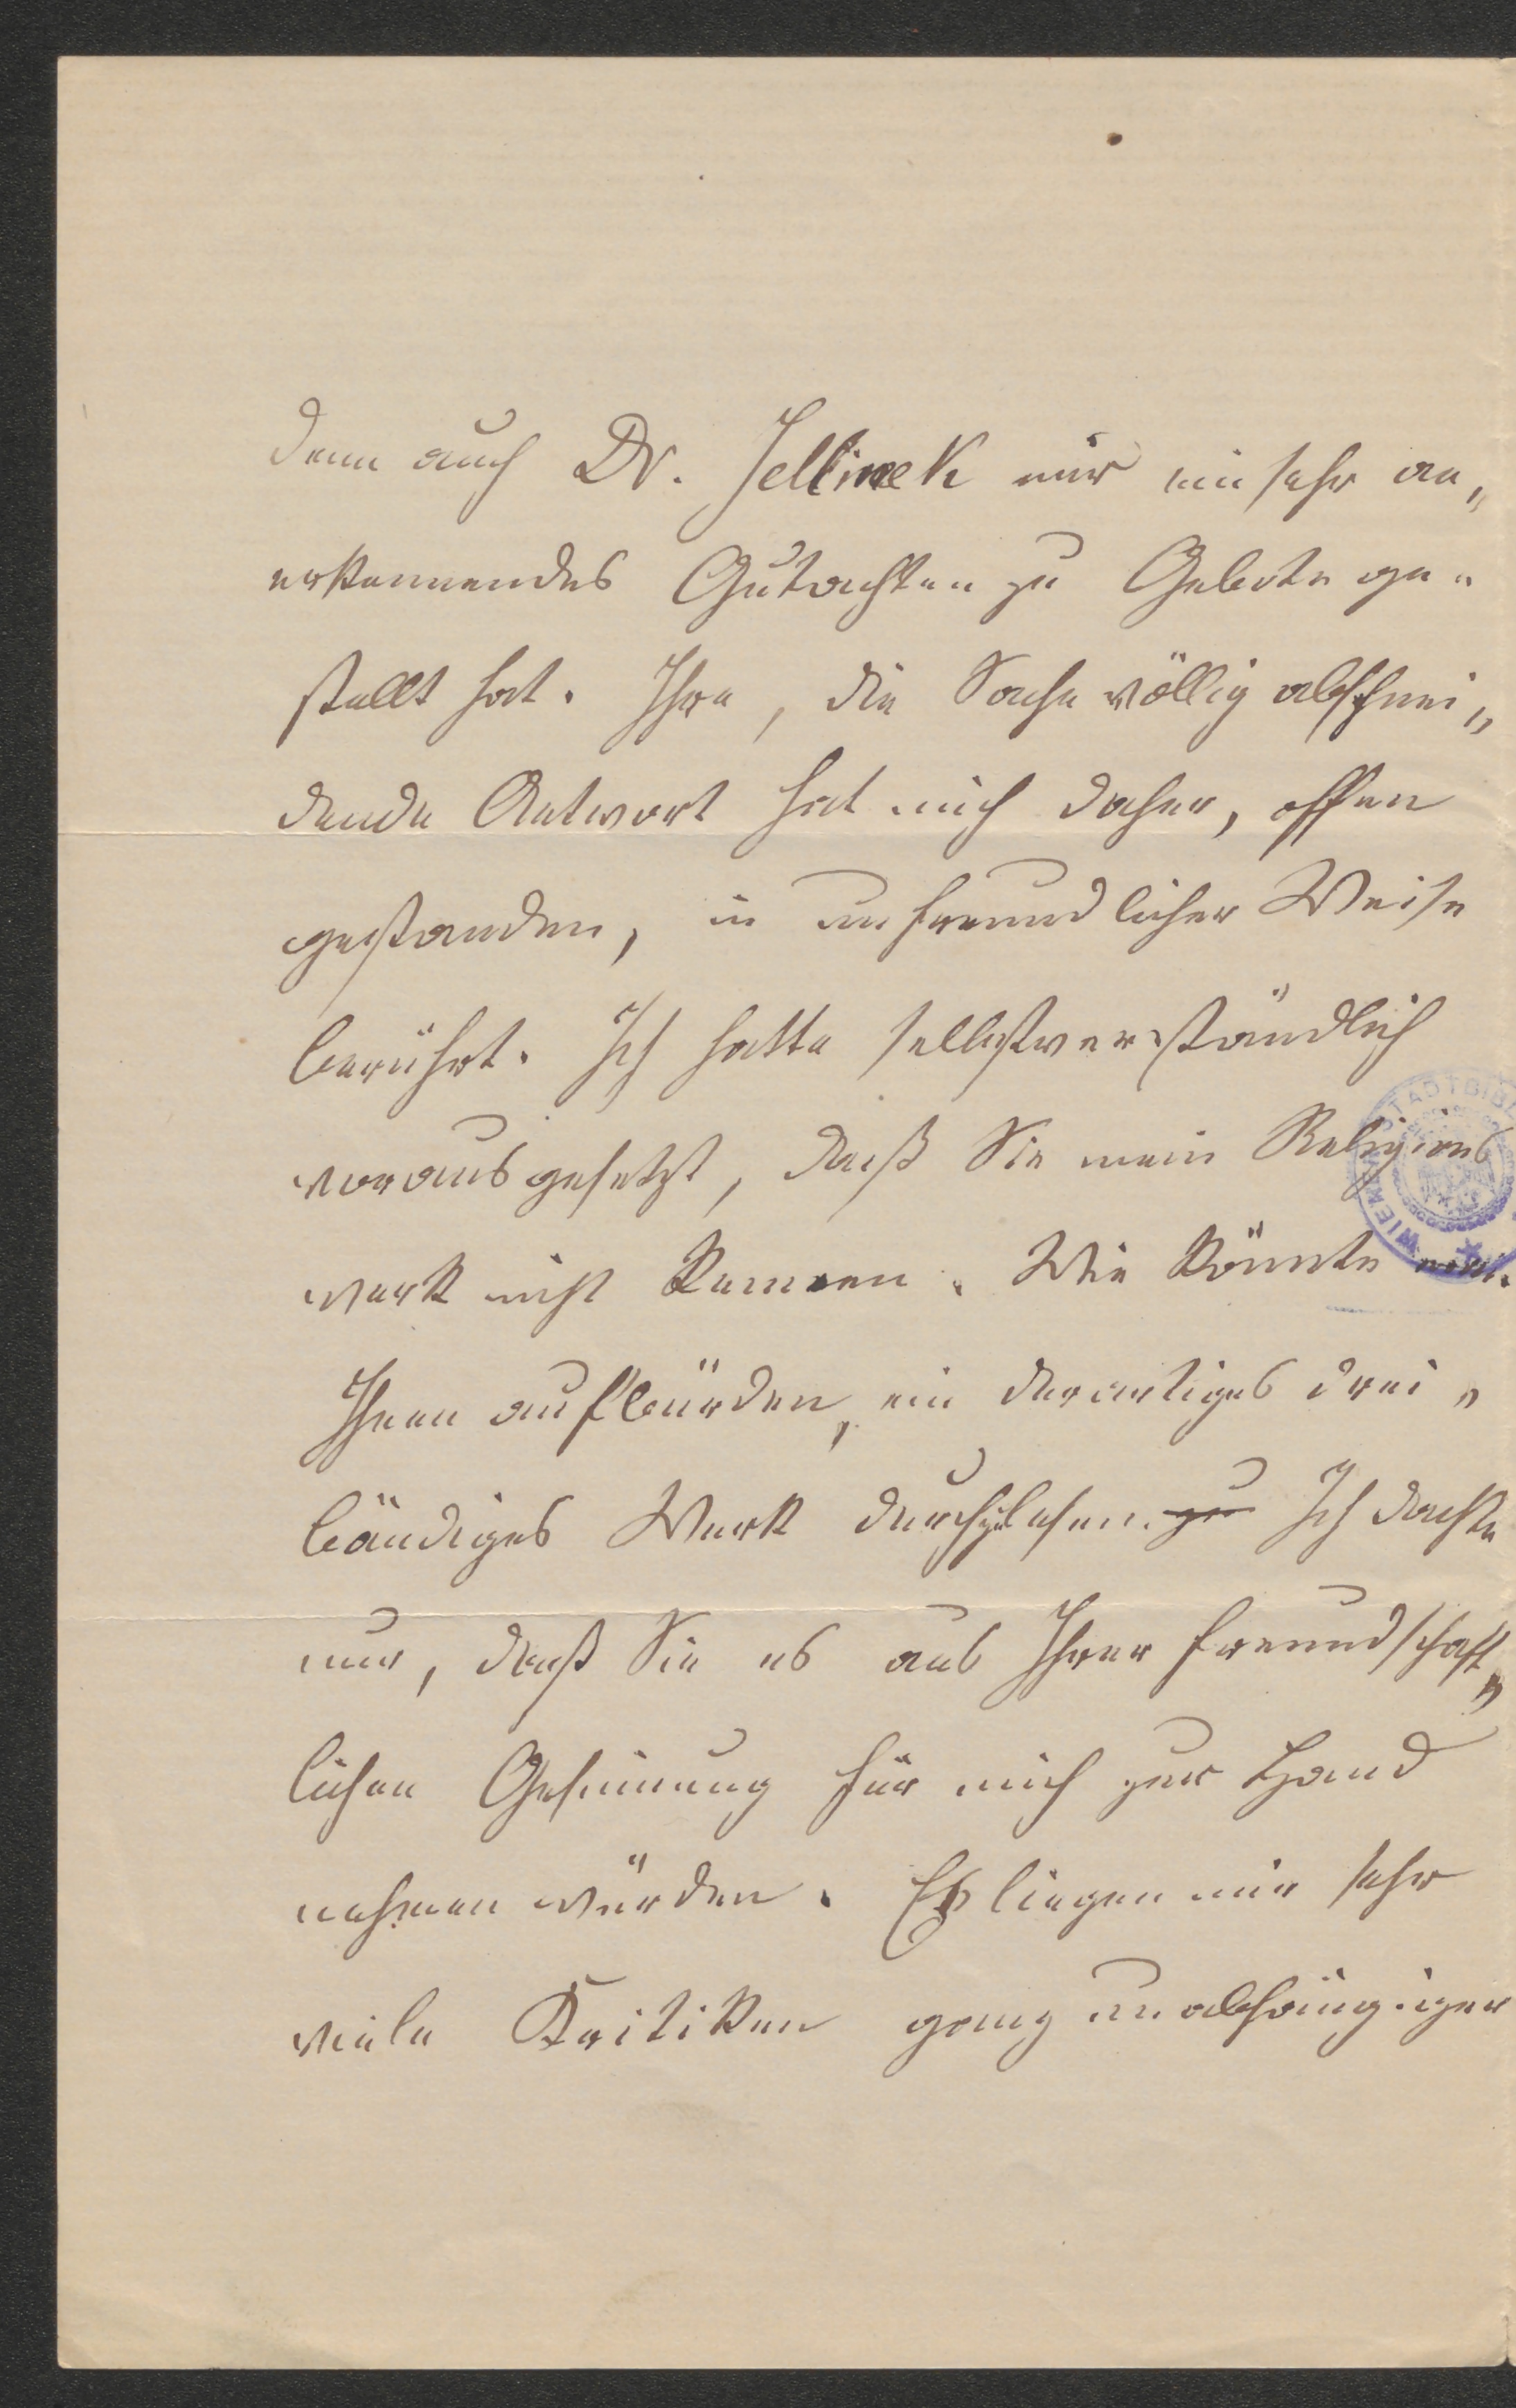 denn auch Dr. Jellinek mir ein sehr an„
erkennendes Gutachten zu Gebote ge„
stellt hat. Ihre, die Sache völlig abschnei„
dende Antwort hat mich daher, offen
gestanden, in unfreundlicher Weise
berührt. Ich hatte selbstverständlich
vorausgesetzt, daß Sie mein Religions
werk nicht kennen. Wie könnte man
Ihnen aufbürden, ein derartiges drei„
bändiges Werk durchzulesen. zu Ich dachte
nur, daß Sie es aus Ihrer freundschaft„
lichen Gesinnung für mich zur Hand
nehmen würden. Es liegen mir sehr
viele Kritiken ganz unabhängiger